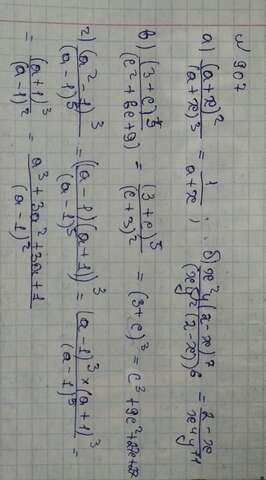 № 907
а) (a+x)²/(a+x)³ = 1/(a+x); б) x²y(2-x)⁷/(xy²(2-x))⁶ = (2-x)/(x⁴y¹¹)
в) (3+c)⁵/(c²+6c+9) = (3+c)⁵/(c+3)² = (3+c)³ = c³+9c²+27c+27
г) (a²-1)³/(a-1)⁵ = ((a-1)(a+1))³/(a-1)⁵ = (a-1)³×(a+1)³/(a-1)⁵ =
= (a+1)³/(a-1)² = (a³+3a²+3a+1)/(a-1)²